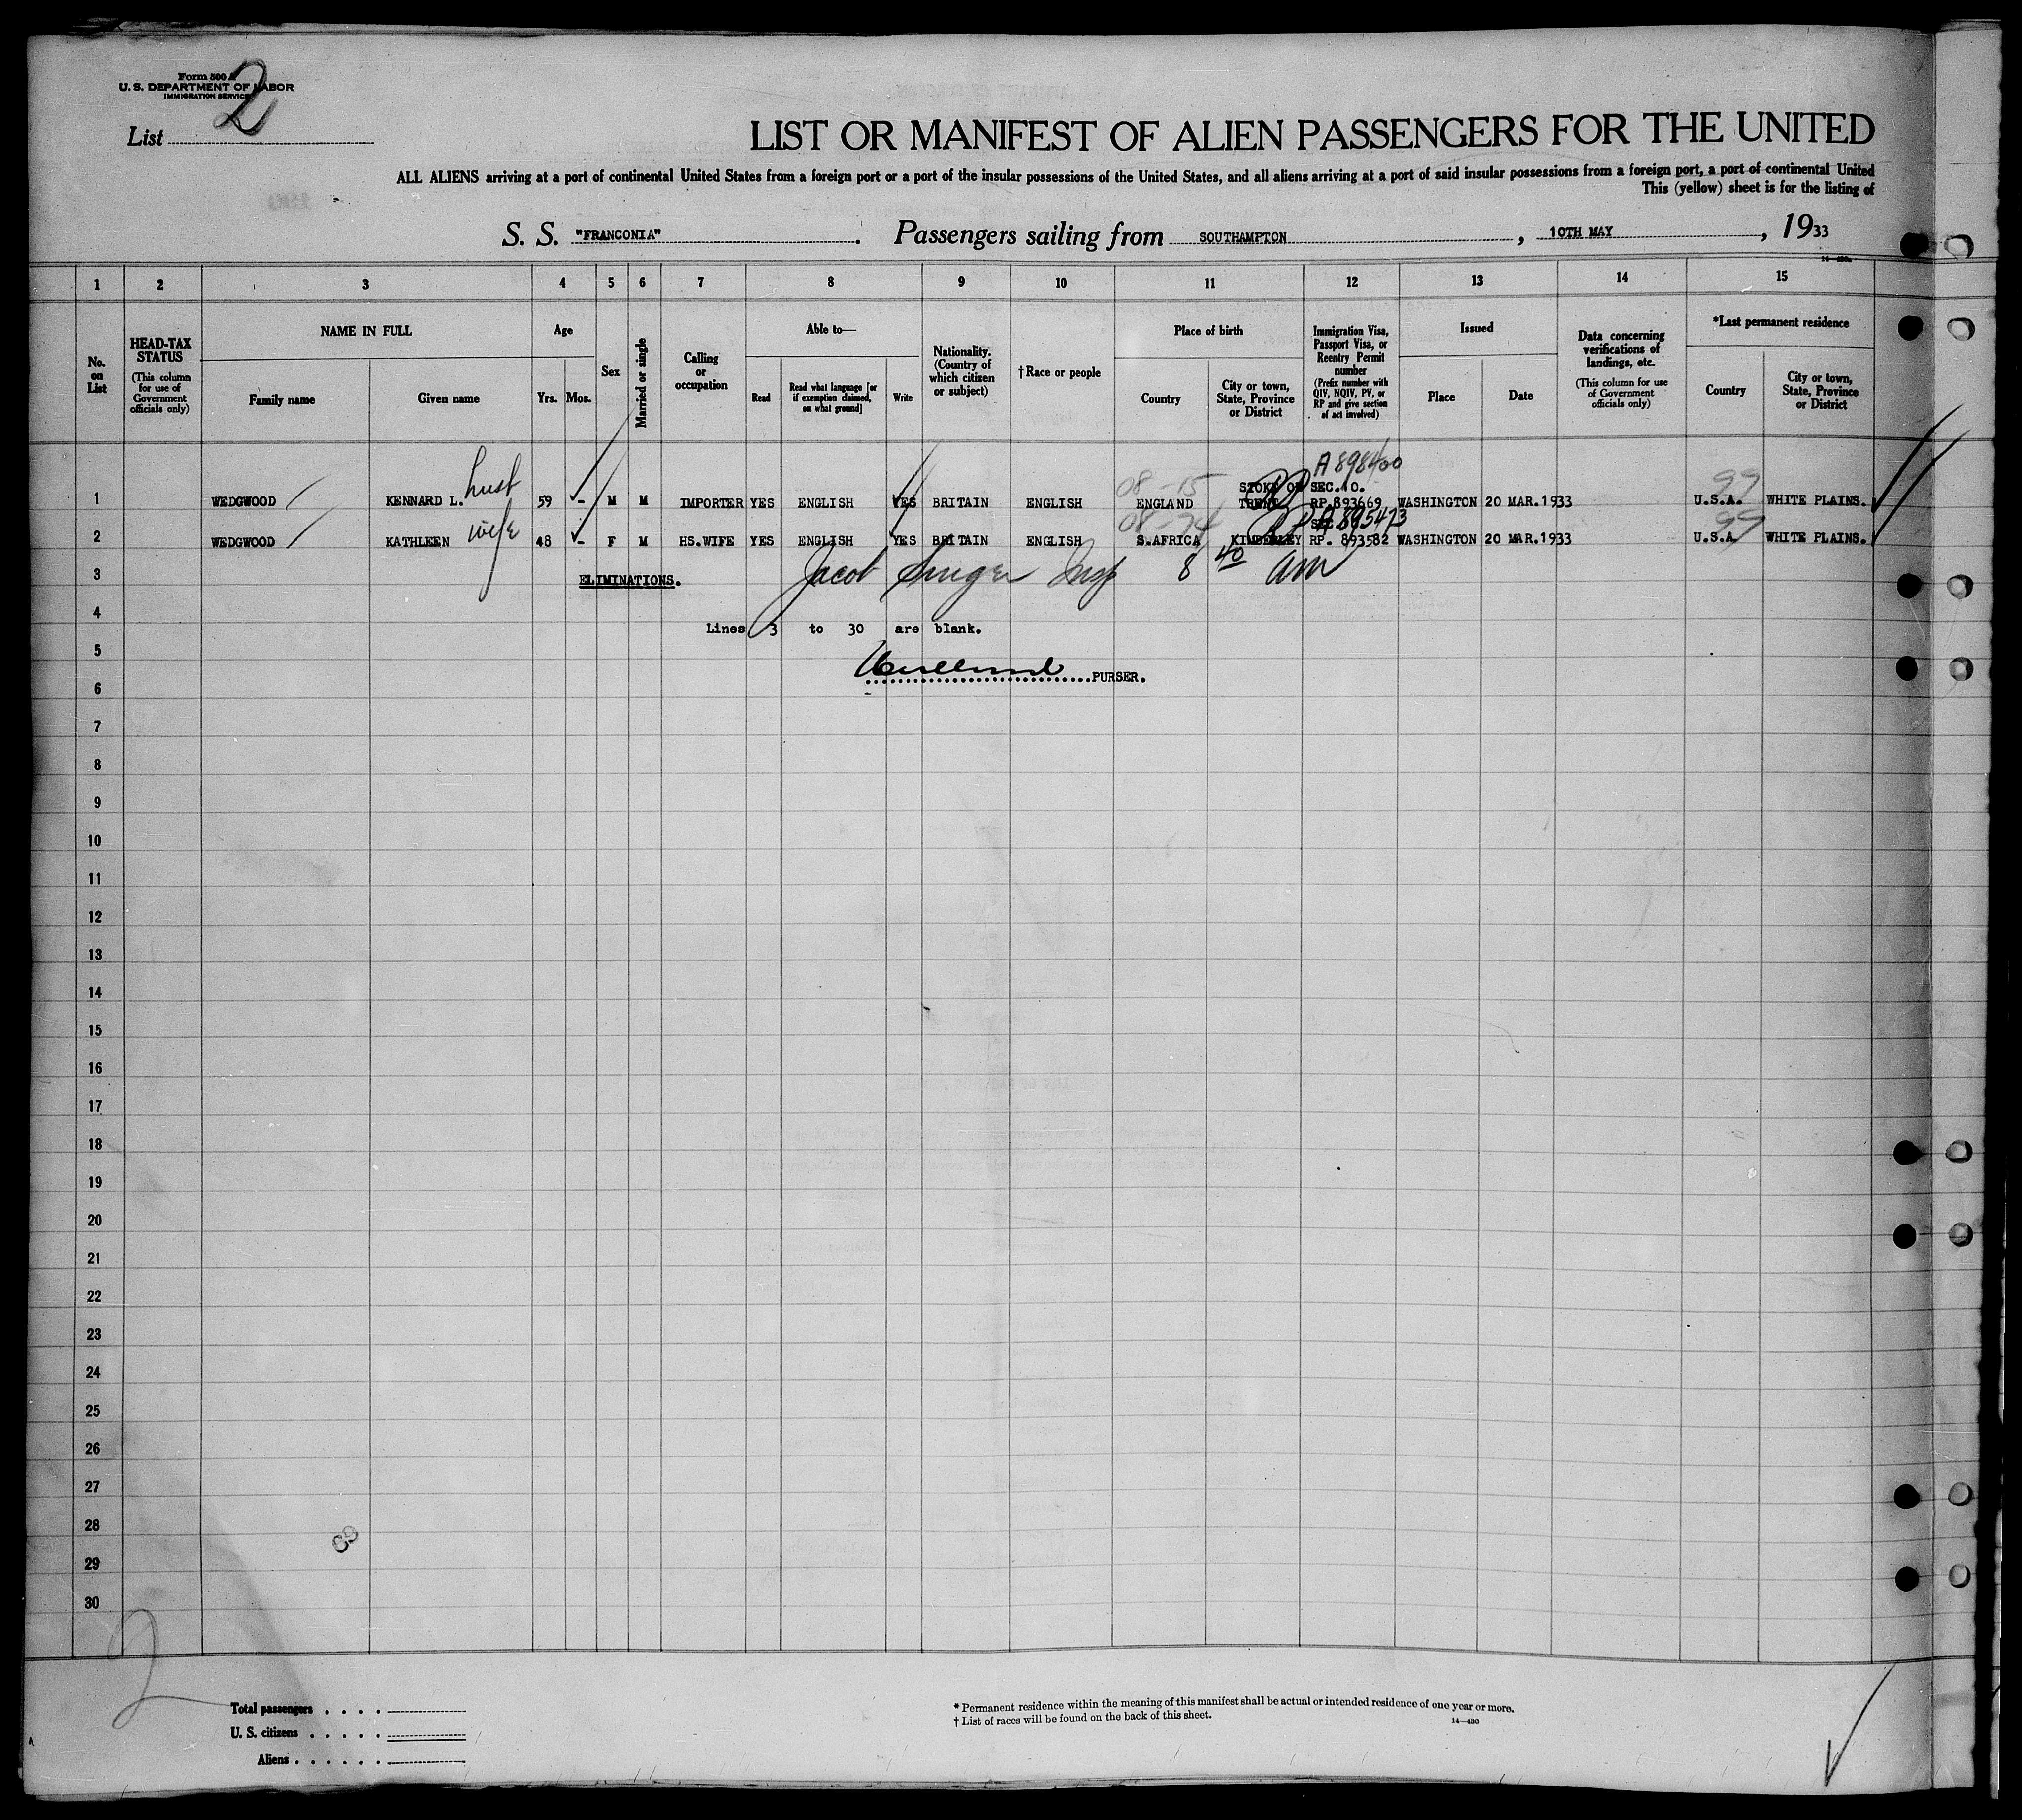 Form 500 A
U. S. DEPARTMENT OF LABOR
IMMIGRATION SERVICE
List 2
LIST OR MANIFEST OF ALIEN PASSENGERS FOR THE UNITED
ALL ALIENS arriving at a port of continental United States from a foreign port or a port of the insular possessions of the United States, and all aliens arriving at a port of said insular possessions from a foreign port, a port of continental United
This (yellow) sheet is for the listing of
S. S. "FRANCONIA". Passengers sailing from SOUTHAMPTON, 10TH MAY, 1933
1 2 3 4 5 6 7 8 9 10 11 12 13 14 15
No. on List
HEAD-TAX STATUS
(This column for use of Government officials only)
NAME IN FULL
Family name
Given name
Age
Yrs. Mos.
Sex
Married or single
Calling or occupation
Able to—
Read
Read what language [or if exemption claimed, on what ground]
Write
Nationality. (Country of which citizen or subject)
†Race or people
Place of birth
Country
City or town, State, Province or District
Immigration Visa, Passport Visa, or Reentry Permit number
(Prefix number with QIV, NQIV, PV, or RP and give section of act involved)
Issued
Place
Date
Data concerning verifications of landings, etc.
(This column for use of Government officials only)
*Last permanent residence
Country
City or town, State, Province or District
A 898400
08-15 STOKE ON SEC.10. 99
1 WEDGWOOD KENNARD L. husb 59 - M M IMPORTER YES ENGLISH YES BRITAIN ENGLISH ENGLAND TRENT RP.893669 WASHINGTON 20 MAR.1933 U.S.A. WHITE PLAINS.
08-74 RP A 895473 99
2 WEDGWOOD KATHLEEN wife 48 - F M HS.WIFE YES ENGLISH YES BRITAIN ENGLISH S.AFRICA KIMBERLEY RP. 893582 WASHINGTON 20 MAR.1933 U.S.A WHITE PLAINS.
3 ELIMINATIONS. Jacob Singer Insp 8 40 am
4
Lines 3 to 30 are blank.
5
PURSER.
6
7
8
9
10
11
12
13
14
15
16
17
18
19
20
21
22
23
24
25
26
27
28
29
30
2
Total passengers
U. S. citizens
Aliens
* Permanent residence within the meaning of this manifest shall be actual or intended residence of one year or more.
† List of races will be found on the back of this sheet.
14—430